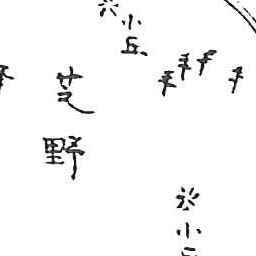 小丘
芝野
小丘